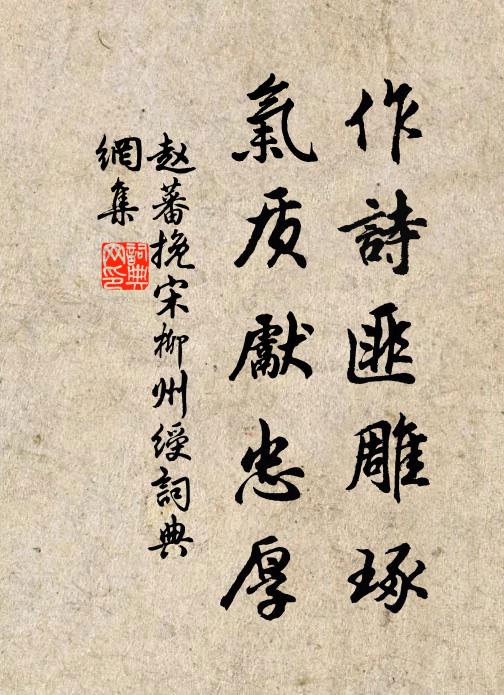 作詩匪雕琢
氣质獻忠厚
赵蕃挽宋柳州绶詞典
網集
詞典
网印